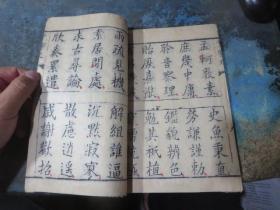 孟軻敦素
史魚秉直
庶幾中庸
勞謙謹敕
聆音察理
鑑貌辨色
貽厥嘉猷
勉其祗植
兩疏見機
解組誰逼
索居閒處
沉默寂寥
求古尋論
散慮逍遙
欣奏累遣
慼謝歡招